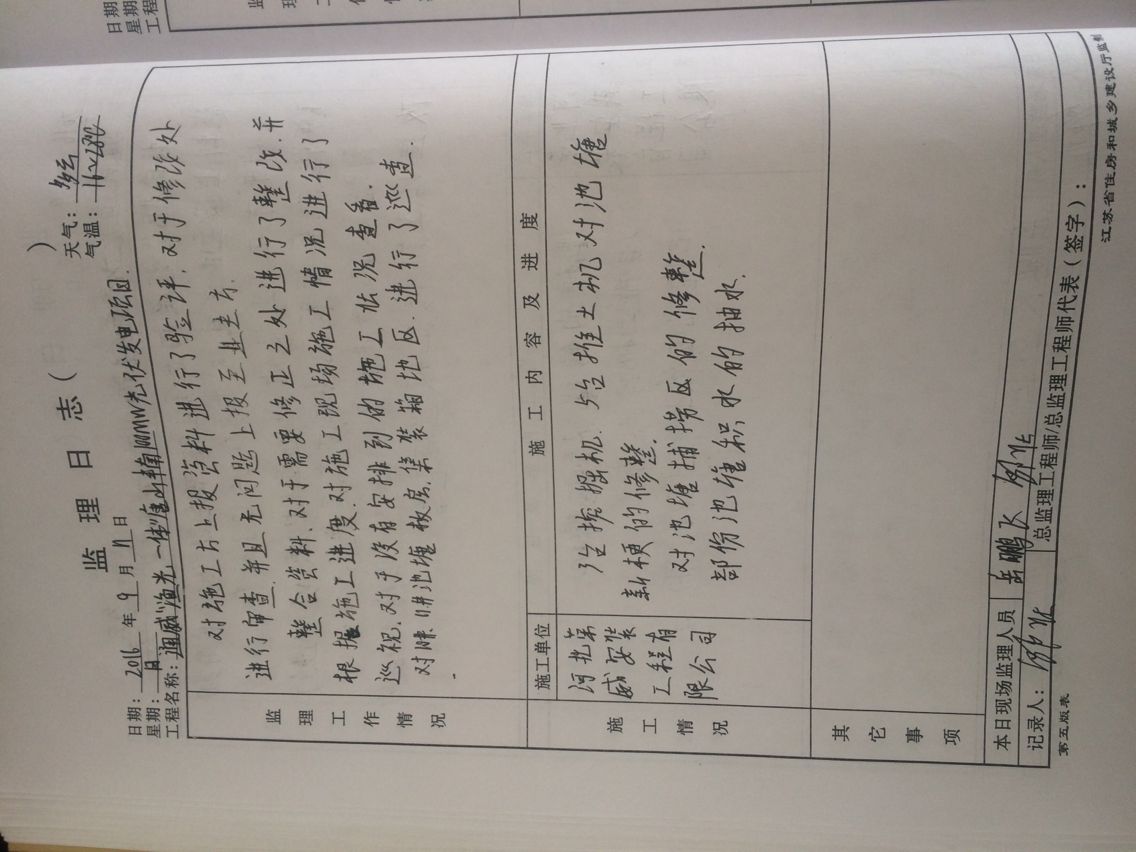 监 理 日 志 (      )
日期: 2016 年 9 月 11 日 天气: 多云
星期: 日 气温: 11~28℃
工程名称: 通威"渔光一体"唐山丰南100MW光伏发电项目.
监理工作情况
对施工方上报资料进行了验评.对于修改处
进行审查.并且无问题上报至业主方.
整合资料.对于需要修正之处进行了整改.并
根据施工进度.对施工现场施工情况进行了
巡视.对于没有安排到的施工状况查看.
对 池塘 集装箱地区.进行了巡查.
施工情况
施工单位
施 工 内 容 及 进 度
河北第
威安装
工程有
限公司
7台挖掘机. 5台推土机对池塘
新梗的修整.
对池塘捕捞区的修整.
部份池塘积水的抽水.
其它事项
本日现场监理人员 岳鹏飞
记录人:
总监理工程师/总监理工程师代表(签字):
第五版表
江苏省住房和城乡建设厅监制
日期
星期
工程